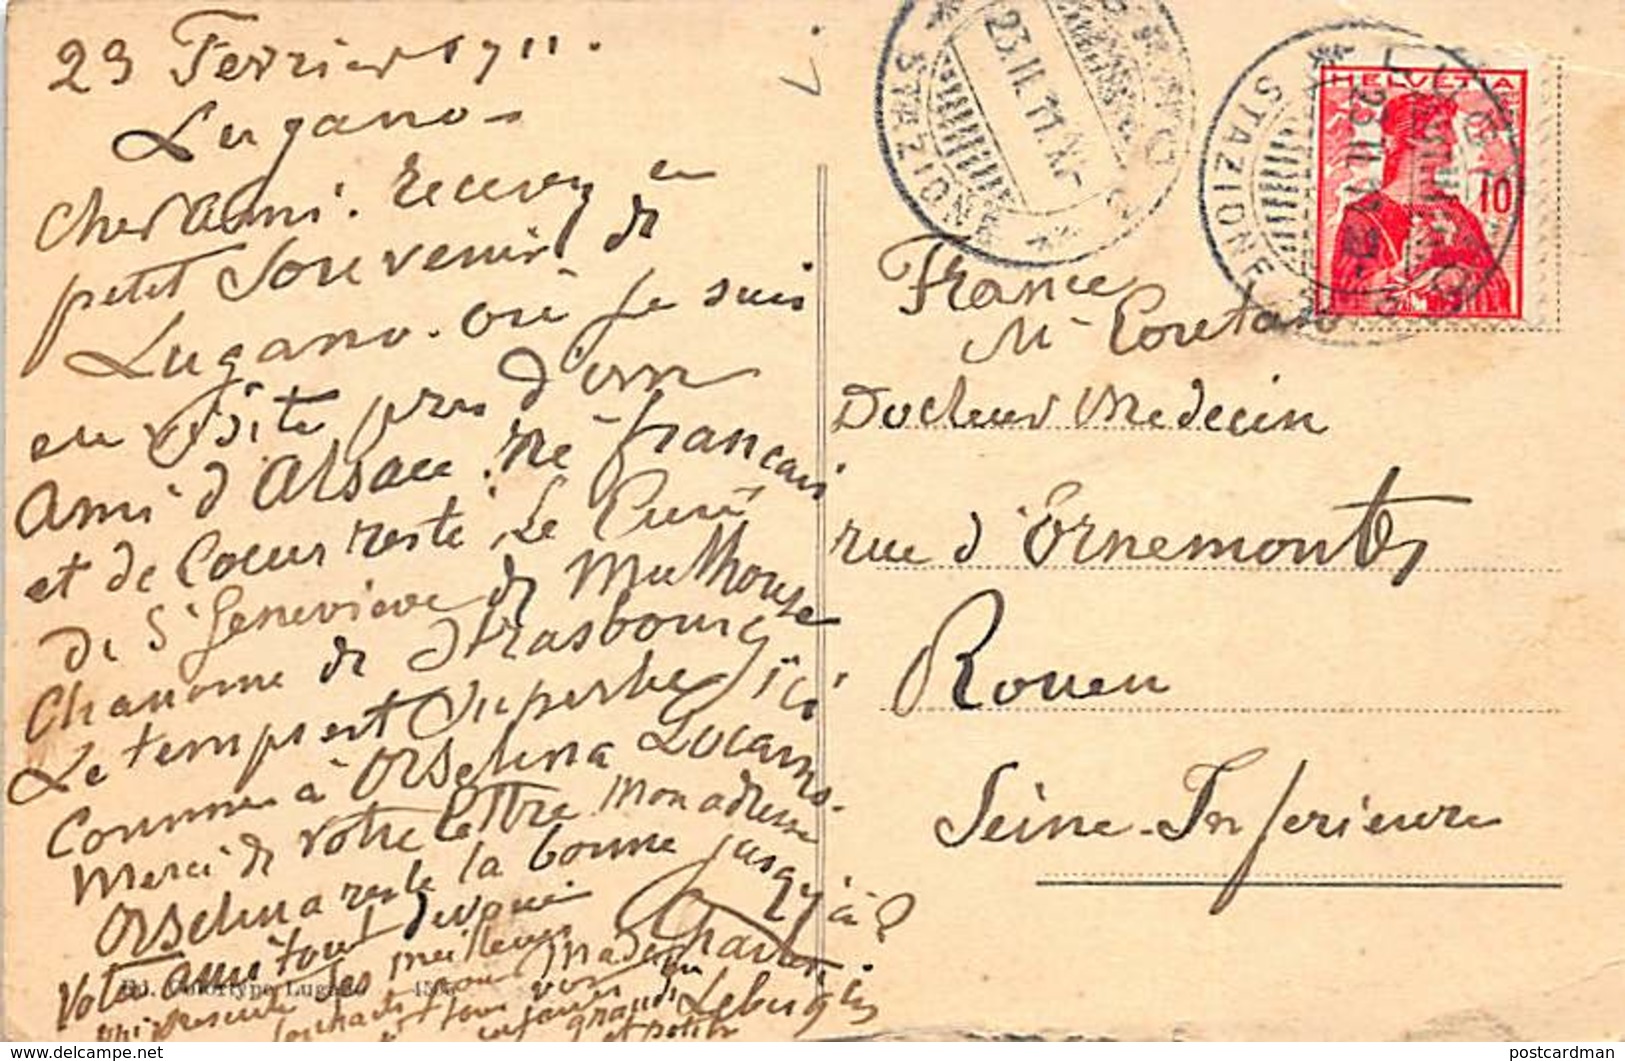 23 Fevrier 1911.
Lugano -
Cher Ami. recevez en
petit Souvenir de
Lugano. où je suis
en visite pres d'un
ami d'Alsace. né français
et de Coeur resté, Le Curé
de Ste Genevieve de Mulhouse
Chanoine de Strasbourg
Le temps est Superbe ici
Comme à Orselina Locarno.
Merci de votre lettre mon adresse
Orselina reste la bonne jusqu'à ?
Votre ami tout devoué
meilleurs
pour Madame
tous vos
enfants grands
et petits
HELVETIA
10
LOCARNO
23.II.11.XI-
STAZIONE
LOCARNO
23.II.11
STAZIONE
France
Mr
Docteur Medecin
rue d'Ernemont
Rouen
Seine-Inferieure
Ed. Colortype Lugano
postcardman